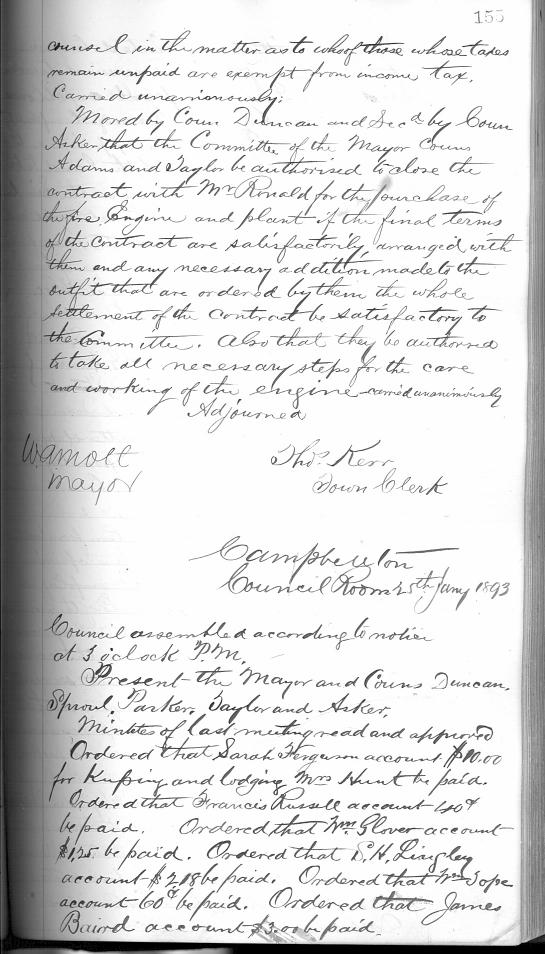 155
counsel in the matter as to who of those whose taxes
remain unpaid are exempt from income tax.
Carried unanimously.
Moved by Coun Duncan and Secd by Coun
Asker that the Committee of the Mayor Couns
Adams and Taylor be authorised to close the
contract with Mr Ronald for the purchase of
the fire Engine and plant if the final terms
of the contract are satisfactorily arranged with
them and any necessary addition made to the
outfit that are ordered by them the whole
settlement of the contract be satisfactory to
the Committee. Also that they be authorised
to take all necessary steps for the care
and working of the engine carried unanimously
Adjourned
W. A. Mott
Mayor
Thos. Kerr
Town Clerk
Campbellton
Council Room 25th Jany 1893
Council assembled according to notice
at 3 o'clock P.M.
Present the Mayor and Couns Duncan,
Sproul, Parker, Taylor and Asker.
Minutes of last meeting read and approved
Ordered that Sarah Ferguson account $10.00
for Keeping and lodging Mrs Hunt be paid.
Ordered that Francis Russell account 40¢
be paid. Ordered that Wm. Glover account
$1.25 be paid. Ordered that S. H. Lingley
account $2.18 be paid. Ordered that Wm Jope
account 60¢ be paid. Ordered that James
Baird account $3.00 be paid.